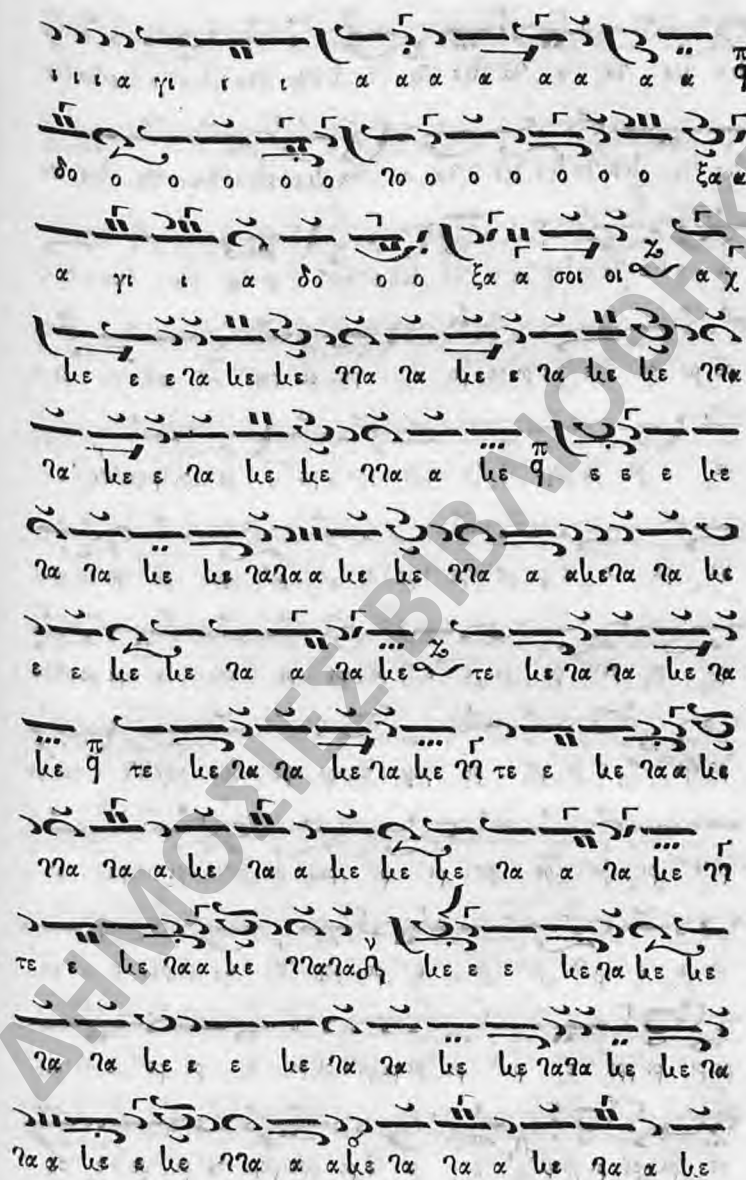 ι ι ι α γι ι ι α α α α α α α α π q
δο ο ο ο ο ο το ο ο ο ο ο ο ξα α
α γι ι α δο ο ο ξα α σοι οι Ζ α χ
κε ε ε τα κε κε ττα τα κε ε τα κε κε ττα
τα κε ε τα κε κε ττα α κε π q ε ε ε κε
τα τα κε κε τα τα α κε κε ττα α α κε τα τα κε
ε ε κε κε τα α τα κε Ζ τε κε τα τα κε τα
κε π q τε κε τα τα κε τα κε Γ τε ε κε τα α κε
ττα τα α κε τα α κε κε κε τα α τα κε Γ
τε ε κε τα α κε ττα τα ν κε ε ε κε τα κε κε
τα τα κε ε ε κε τα τα κε κε τα τα κε κε τα
τα α κε ε κε ττα α α κε τα τα α κε τα α κε
ΔΗΜΟΣΙΕΣ ΒΙΒΛΙΟΘΗΚ